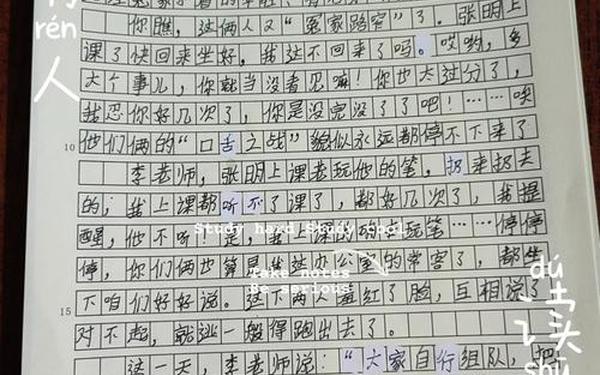 rén
人
你瞧，这俩人又“冤家路窄”了。张明上
课了快回来坐好，我这不回来了吗。哎哟，多
大个事儿，你就当没看见嘛！你也太过分了，
我忍你好几次了，你是没完没了了吧！……唉
10
他们俩的“口舌之战”貌似永远都停不下来了
李老师，张明上课老玩他的笔，扔来扔去
的，我上课都听不了课了，都好几次了，我提
醒，他不听！是，我上课的确在玩笔……停停
Study hard Study cool
停，你们俩也算是我这办公室的常客了，都坐
Take notes
Be serious
下咱们好好说。这下两人羞红了脸，互相说了
15
对不起，就逃一般得跑出去了。
这一天，李老师说：“大家自行组队，把
dú